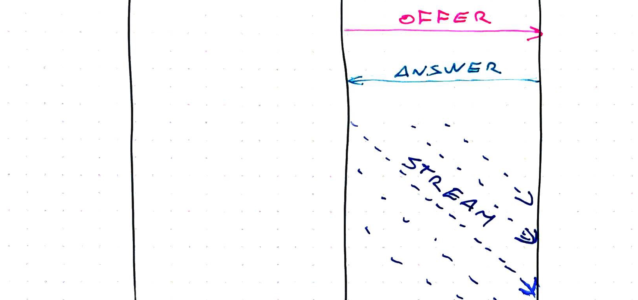 OFFER
ANSWER
STREAM